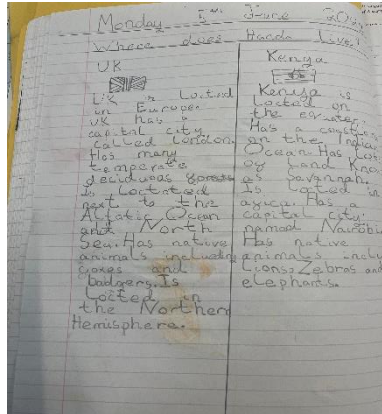 Monday June
Where does Handa live?
UK
UK is Locted
in Europe.
UK has a
capital city
called London.
Has many
temperate
deciduous
Is loctated
next to the
Altatic Ocean
and North
Sea. Has native
animals including
foxes and
badgers. Is
Locted in
the Northern
Hemisphere.
Kenya
Kenya is
Locted on
the
Has a
on the India
Ocean. Has Lots
of Land Know
as Savannah.
Is Locted in
Has a
capital city
namod Nairobi
Has native
animals inclu
Lions, Zebras and
elephants.